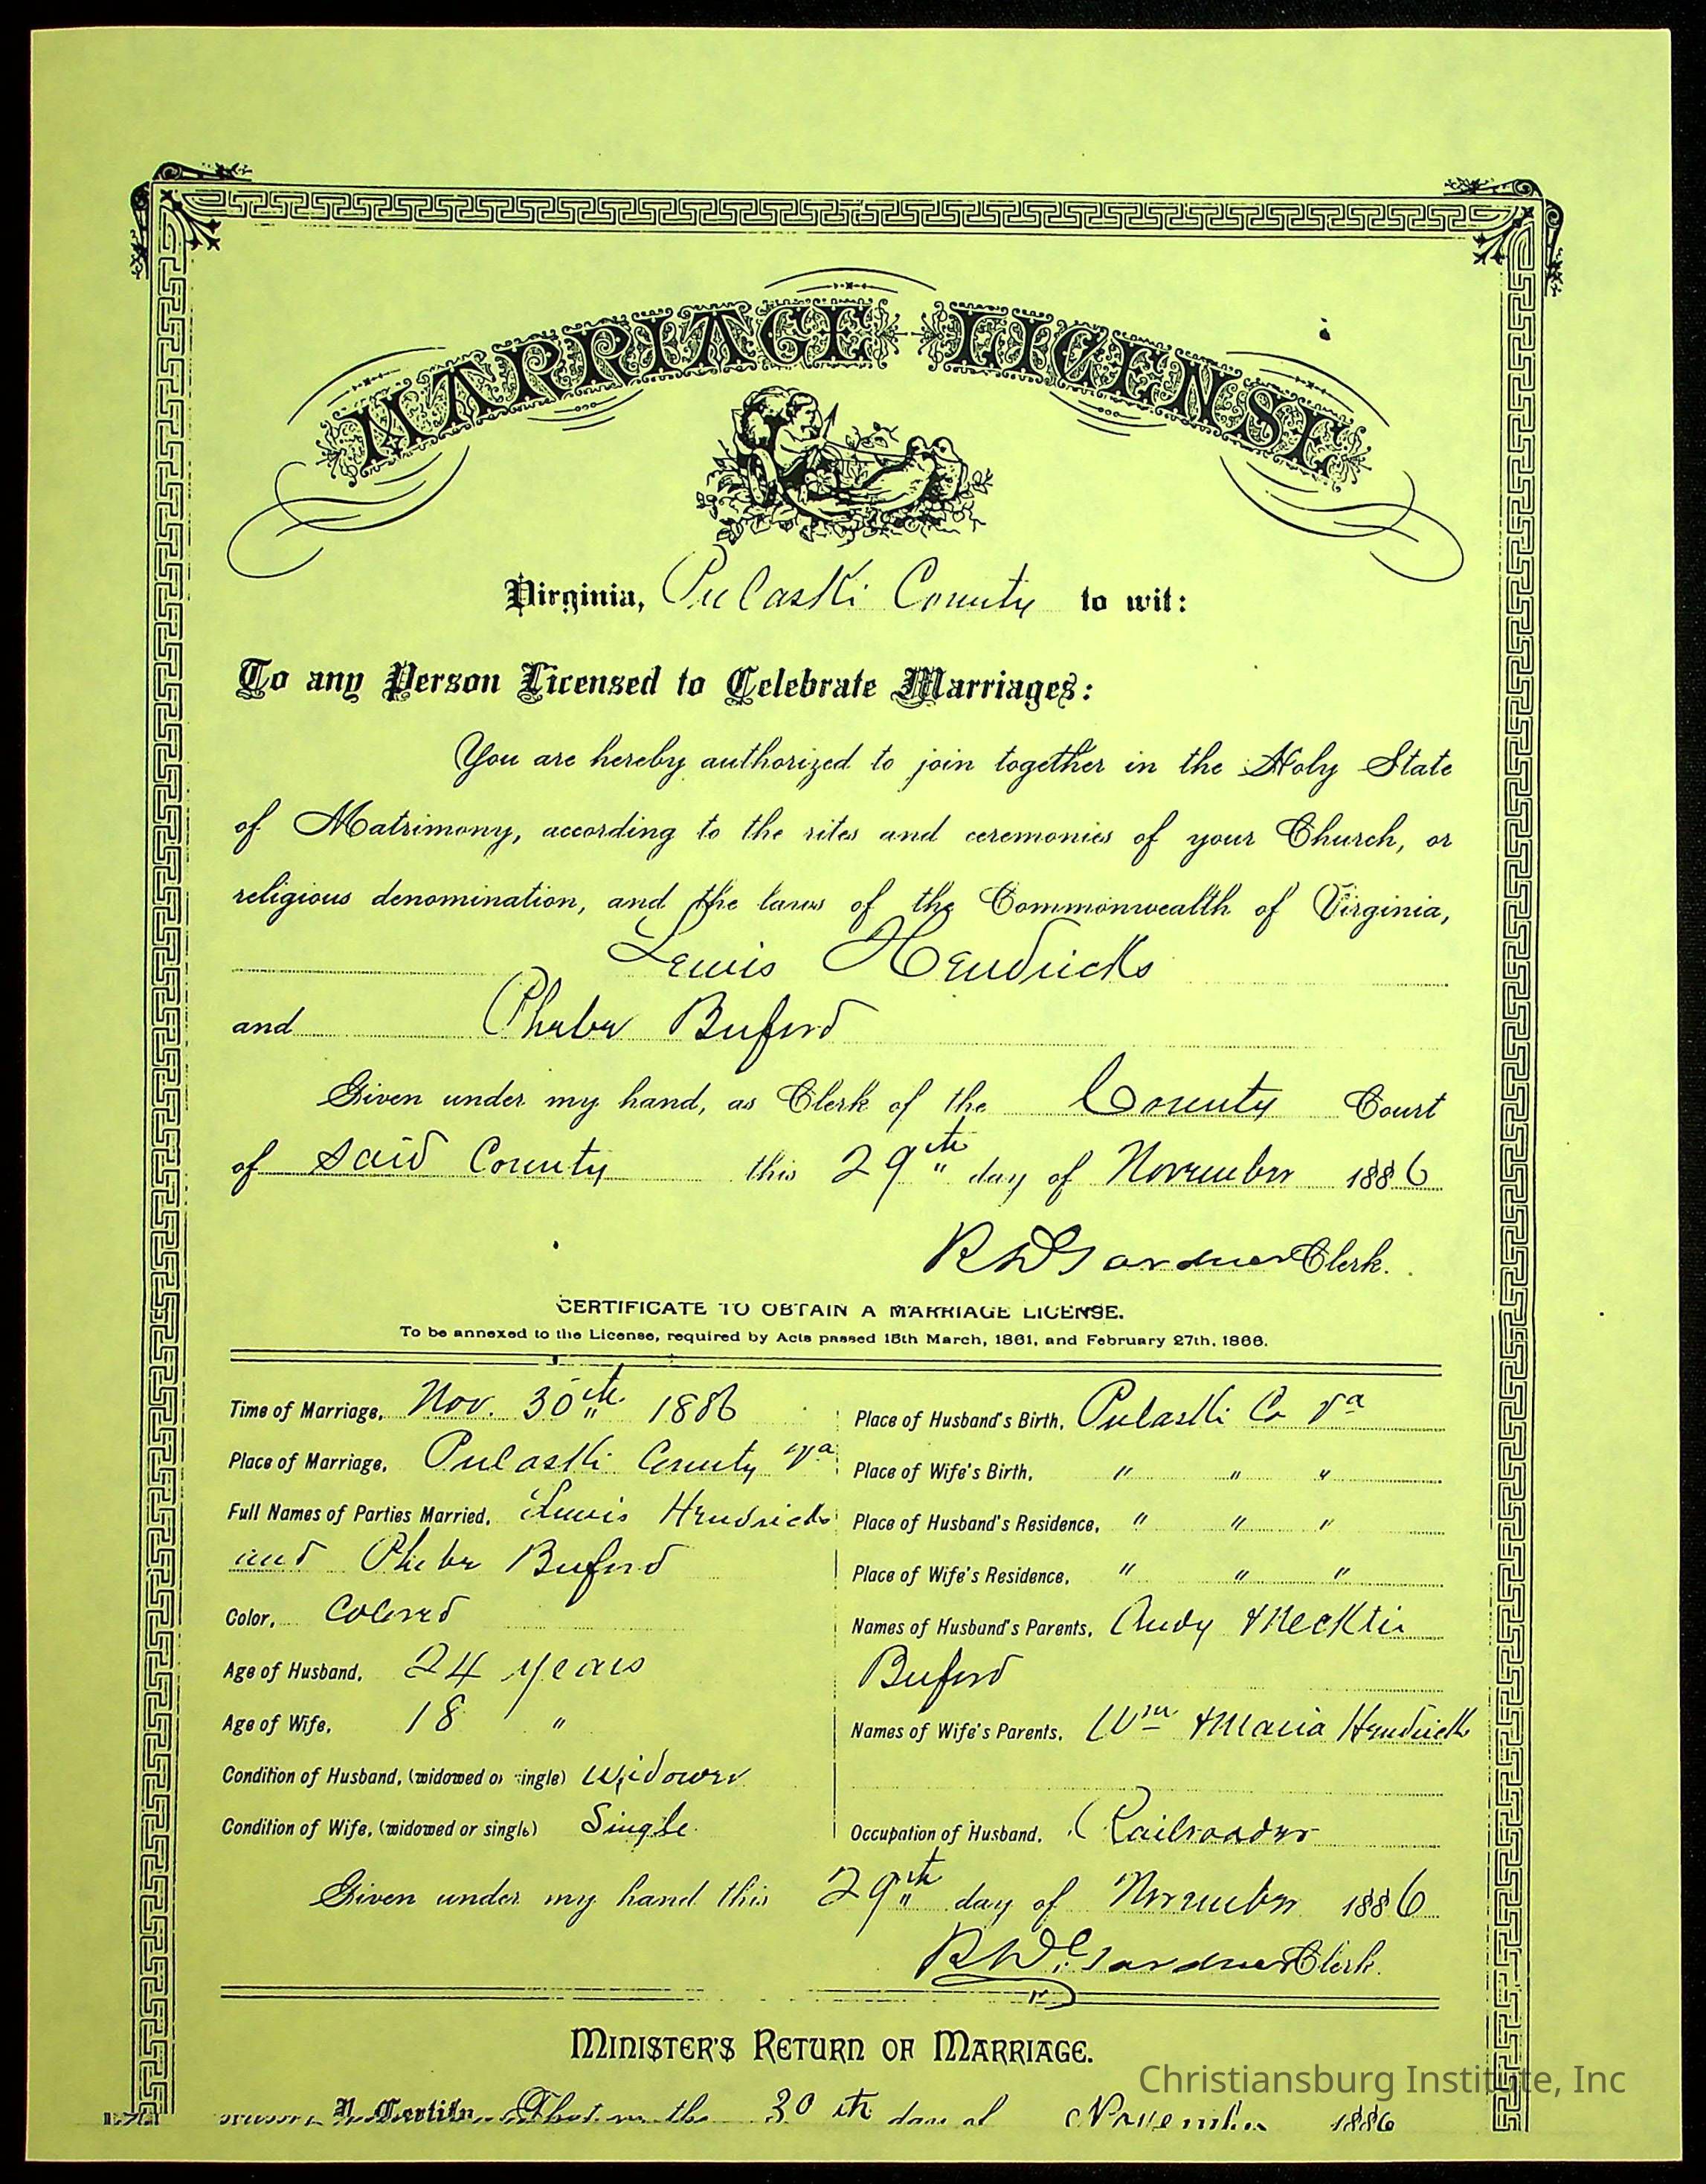 MARRIAGE LICENSE
Virginia, Pulaski County to wit:
To any Person Licensed to Celebrate Marriages:
You are hereby authorized to join together in the Holy State
of Matrimony, according to the rites and ceremonies of your Church, or
religious denomination, and the laws of the Commonwealth of Virginia,
Lewis Hendricks
and Phebe Buford
Given under my hand, as Clerk of the County Court
of said County this 29th day of November 1886
R W Gardner Clerk.
CERTIFICATE TO OBTAIN A MARRIAGE LICENSE.
To be annexed to the License, required by Acts passed 15th March, 1861, and February 27th, 1866.
Time of Marriage, Nov. 30th 1886
Place of Marriage, Pulaski County Va
Full Names of Parties Married, Lewis Hendricks
and Phebe Buford
Color, Colored
Age of Husband, 24 years
Age of Wife, 18 "
Condition of Husband, (widowed or single) Widower
Condition of Wife, (widowed or single) Single
Place of Husband's Birth, Pulaski Co Va
Place of Wife's Birth, " " "
Place of Husband's Residence, " " "
Place of Wife's Residence, " " "
Names of Husband's Parents, Andy &
Buford
Names of Wife's Parents, Wm & Maria Hendricks
Occupation of Husband, Railroader
Given under my hand this 29th day of November 1886
R W Gardner Clerk.
MINISTER'S RETURN OF MARRIAGE.
Certify, That on the 30th day of November 1886
Christiansburg Institute, Inc